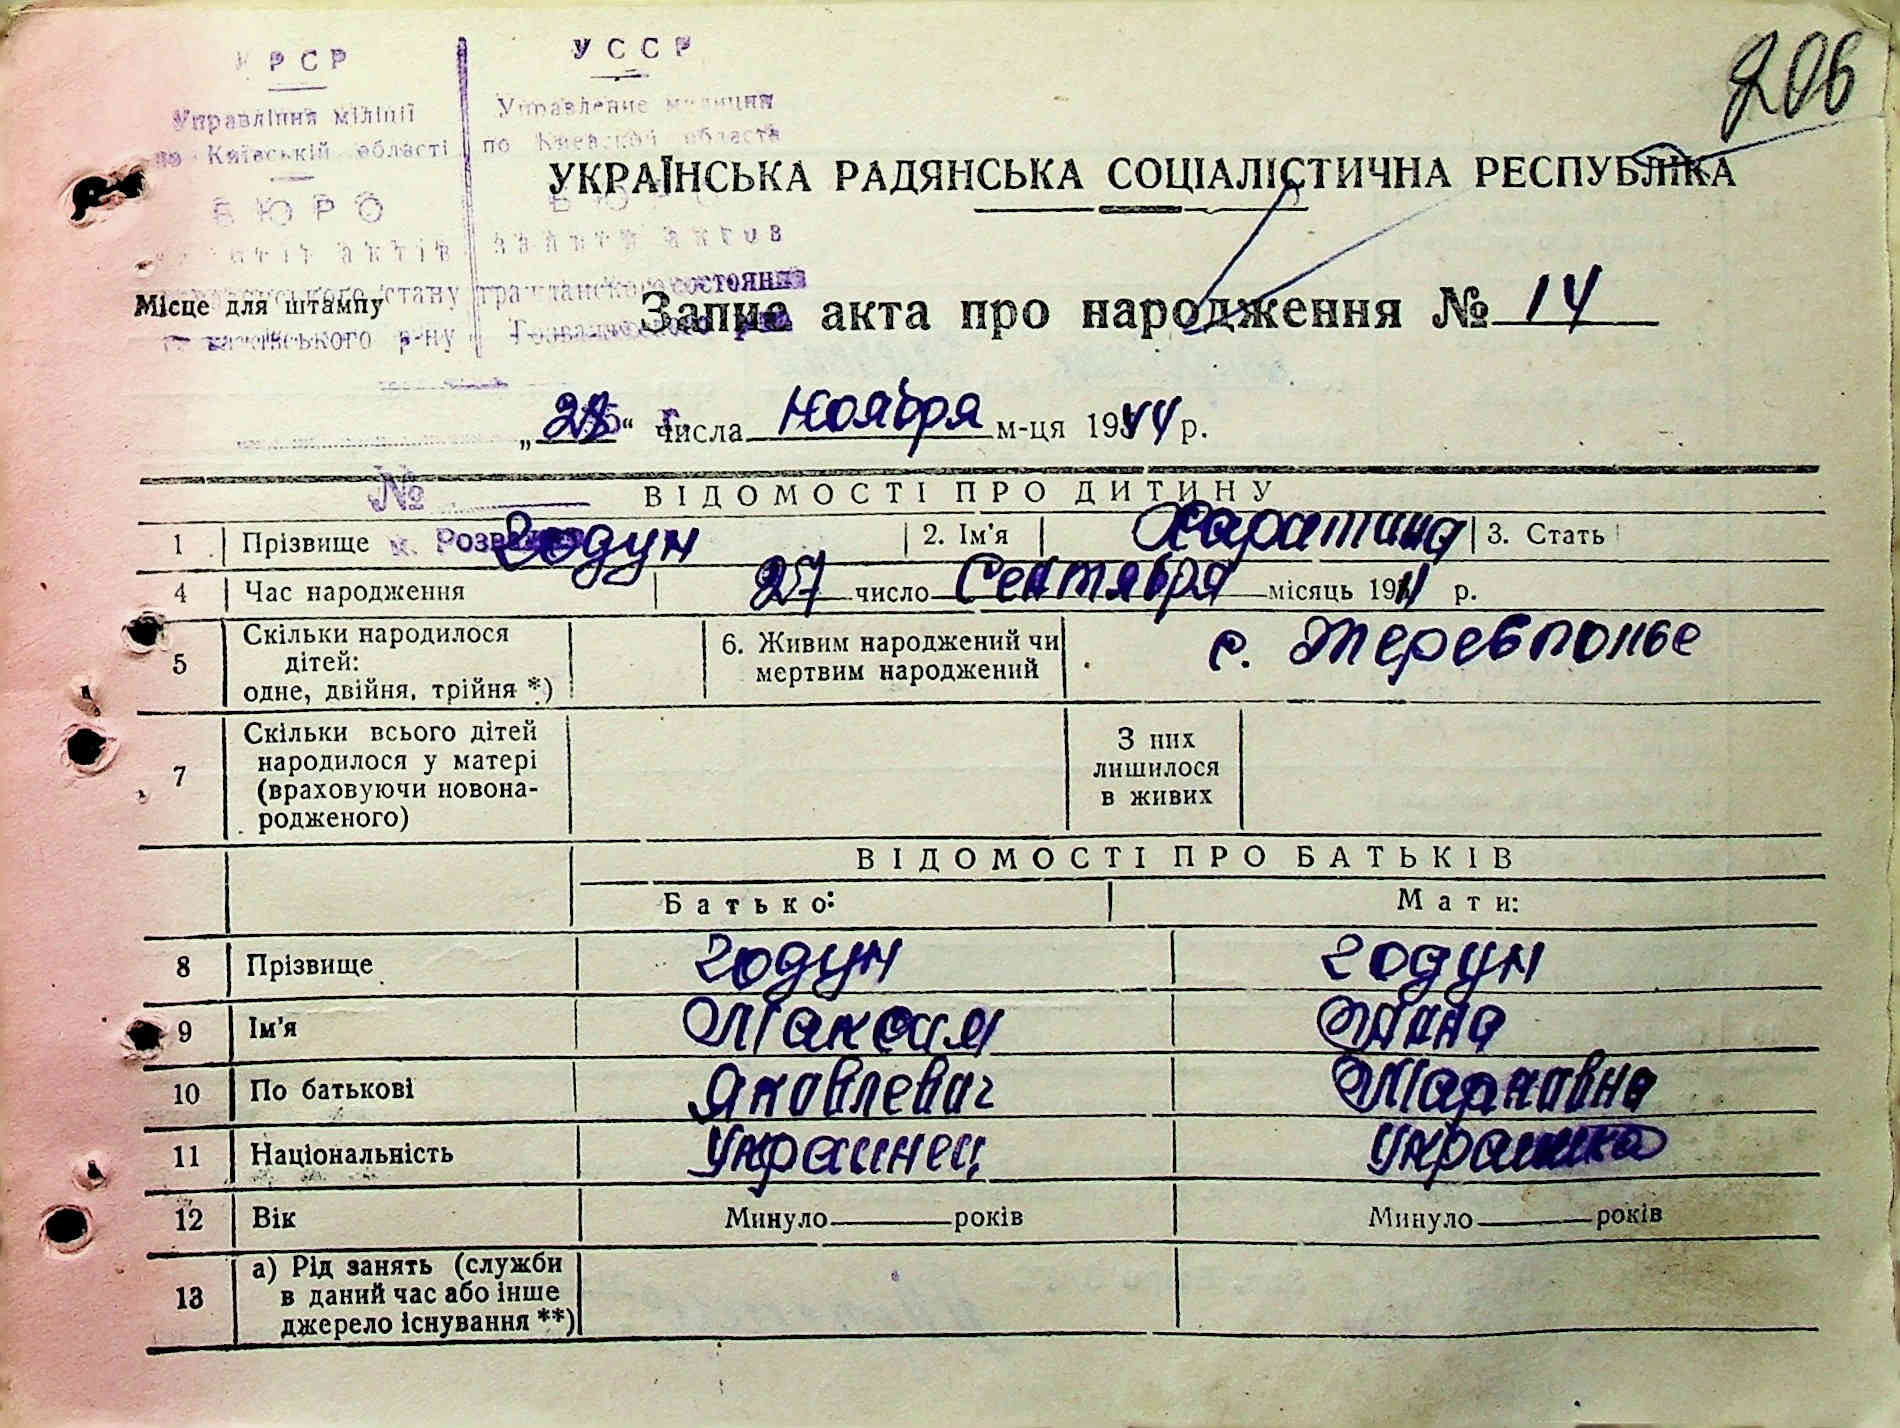 УРСР
УССР
Управління міліції
Управление милиции
по Київській області
по Киевской области
БЮРО
УКРАЇНСЬКА РАДЯНСЬКА СОЦІАЛІСТИЧНА РЕСПУБЛІКА
206
актів
записи актов
стану гражданского состояния
Місце для штампу
Запис акта про народження № 14
р-ну
„28“ числа Ноября м-ця 1944 р.
№
ВІДОМОСТІ ПРО ДИТИНУ
1 Прізвище Годун 2. Ім'я 3. Стать
4 Час народження 27 число Сентября місяць 19 р.
5 Скільки народилося дітей: одне, двійня, трійня *) 6. Живим народжений чи мертвим народжений с. Термовполье
7 Скільки всього дітей народилося у матері (враховуючи новонародженого) З них лишилося в живих
ВІДОМОСТІ ПРО БАТЬКІВ
Батько: Мати:
8 Прізвище Годун Годун
9 Ім'я Максим
10 По батькові Яковлевич
11 Національність Украинец Украинка
12 Вік Минуло років Минуло років
13 а) Рід занять (служби в даний час або інше джерело існування **)